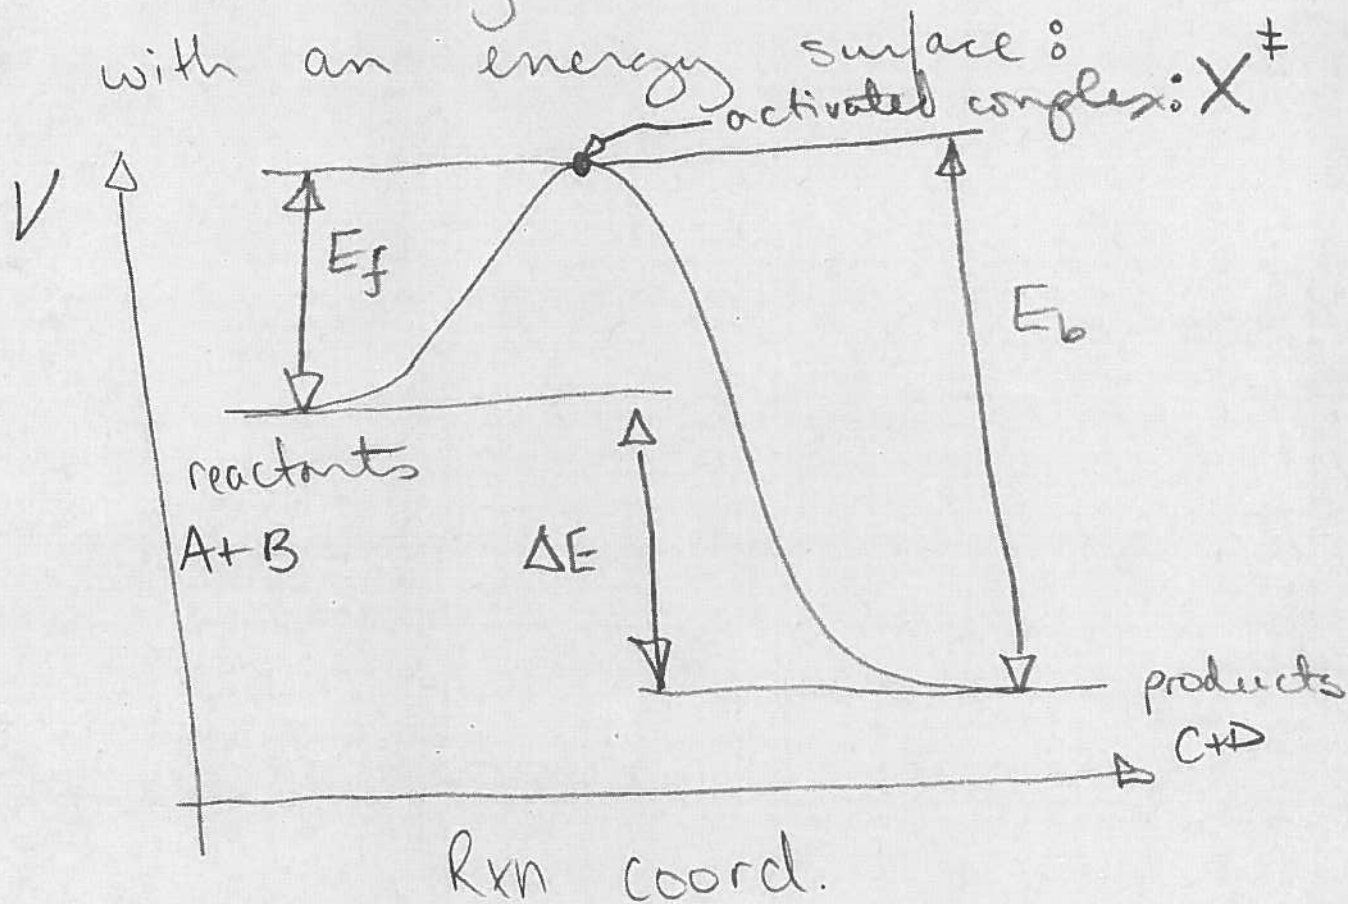 with an energy surface:
activated complex: X‡
V
E_f
E_b
reactants
A+B
ΔE
products
C+D
Rxn coord.